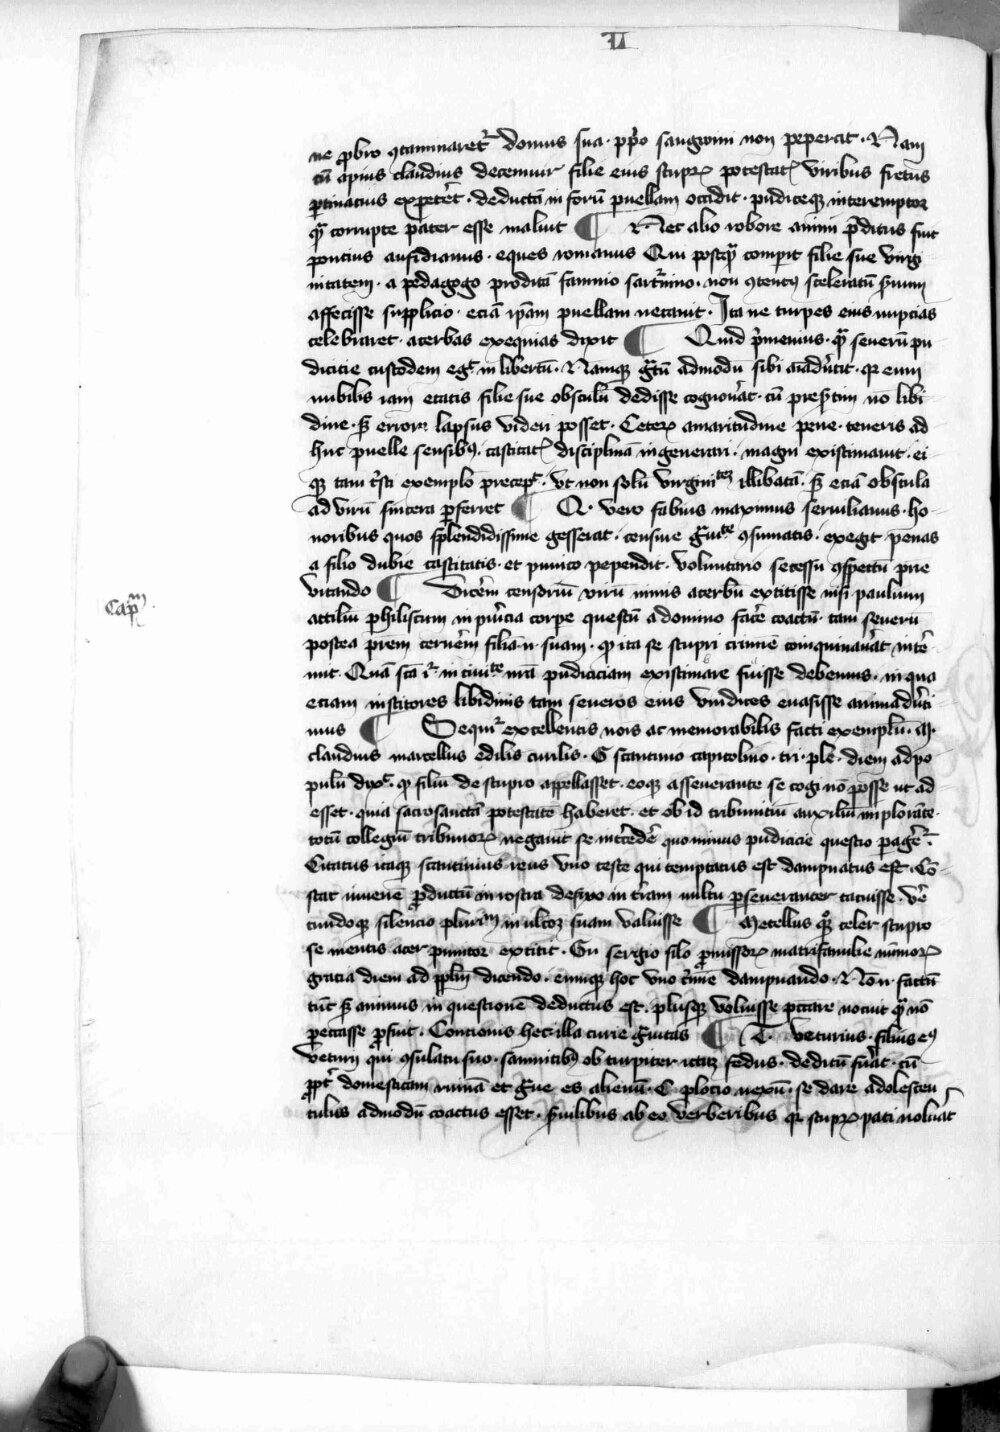 VI
ne probro ꝯtaminaretᷣ domus sua · ꝓpͦo sangwini non pepercit · Nam
cū apius claudius decemuir filie eius stupꝝ potestatꝭ viribus fretus
ꝑtinacius expetēt · deductā in forū puellam occidit · pudiceqꝫ interemptor
qᷓ corrupte pater esse maluit ¶ Nec alio robore animi p̄ditus fuit
poncius aufidianus · eques romanus Qui postqᷓ comperit filie sue virgi
nitatem · a pedagogo proditā fannio saturnino · non ꝯtentꝰ sceleratū ẜuum
affecisse supplicio · eciā ip̄am puellam necauit · Ita ne turpes eius nupcias
celebraret · acerbas exequias dixit ¶ Quid p̄menius · qᷓ seuerū pu
dicicie custodem egͭ in libertū · Namqꝫ gᷓtū admodū sibi aīad̄utit · qꝛ eum
nubilis iam etatis filie sue obsculū dedisse cognou̾at · cū pres̾tim nō libi
dine · ẜ errore lapsus videri posset · Ceteꝝ amaritudine pene · teneris ad
huc puelle sensibꝰ · castitatꝭ disciplinā ingenerari · magni existimauit · ei
qꝫ tam tᷤsti exemplo precepͭ · vt non solū virginiᵗᵉꝫ illibatā · ẜ eciā obscula
ad virū sincera ꝑferret ¶ Q · vero fabius maximus seruilianus · ho
noribus quos splendidissime gesserat · censure gᷓuiᵗᵉ ꝯsumatis · exegit penas
a filio dubie castitatis · et punito pependit · voluntario secessu ꝯspectū prie
vitando ¶ Dicēm censoriū virū nimis acerbū extitisse nisi paulum
attiliū philiscum in pu̾icia corpe questū a domino fac̾e coactū · tam seuerū
postea p̄rem cernēm filiā ·n· suam · ꝙ ita se stupri crimīe coinquinau̾at int̾e
mit · Quā sc̄ā ꝭ᷑ in ciuiᵗᵉ nrā pudiciciam existimare fuisse debemus · in qua
eciam institores libidinis tam seueros eius vindices euasisse animad̾uti
mus ¶ Sequiᷣ excellentis nois ac memorabilis facti exemplū · M ·
claudius marcellus edilis curilis · G scantinio capitolino · tri · ple · diem ad po
pulū dixͭ · ꝙ filiū de stupro appellasset · eoqꝫ asseuerante se cogi nō posse ut ad
esset · quia sacrosanctā potestatē haberet · et ob id tribunitiū auxiliū implorāte ·
totū collegiū tribunoꝝ negauit se int̾cede̾ quominus pudicicie questio ꝑage̾ᷣ ·
Citatus itaqꝫ scantinius reus vno teste qui temptatus est dampnatus est · Cō
stat iuuenē ꝓductū in rostra defixo in t̾ram vultu ꝑseueranter tacuisse · ve̾
cundoqꝫ silencio plurimū in vltoꝝ suam valuisse ¶ Metellus qꝫ celer stupro
se mentis acer punitor extitit · Gn sergio silo ꝓmissoꝝ matrifamilie nūmoꝝ
gracia diem ad pplm dicendo · eumqꝫ hoc vno c̾mīe dampnando · Nō ·n· factū
tūc ẜ animus in questionē deductus est · plusqꝫ voluisse pc̄care nocuit qᷓ nō
peccasse ꝓfuit · Concionis hec · illa curie gᷓuitas ¶ T · veturius · filius eꝰ
veturij qui ꝯsulatu suo · samnitibꝰ ob turpiter ictū fedus · deditū fu̾at · cū
ꝓpt̾ domesticam ruinā et gᷓue es alienū · C plocio nexū · se dare adolescen
tulus admodū coactus esset · ẜuilibus ab eo verberibus qꝛ stupꝝ pati nolu̾at
Capᵐ